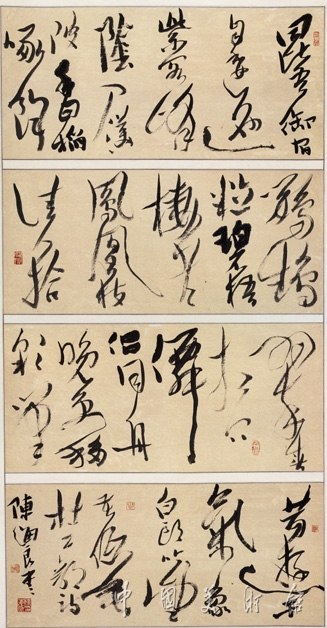 昆吾御宿
自逶迤
紫閣峰
陰入渼
陂香稻
啄餘
鸚鵡
粒碧梧
棲老
鳳凰枝
佳人拾
翠春
相問
僊
侣同舟
晚更移
彩筆
昔遊干
氣象
白頭吟望
苦低垂
杜工部詩
陳海良書
中國美術館